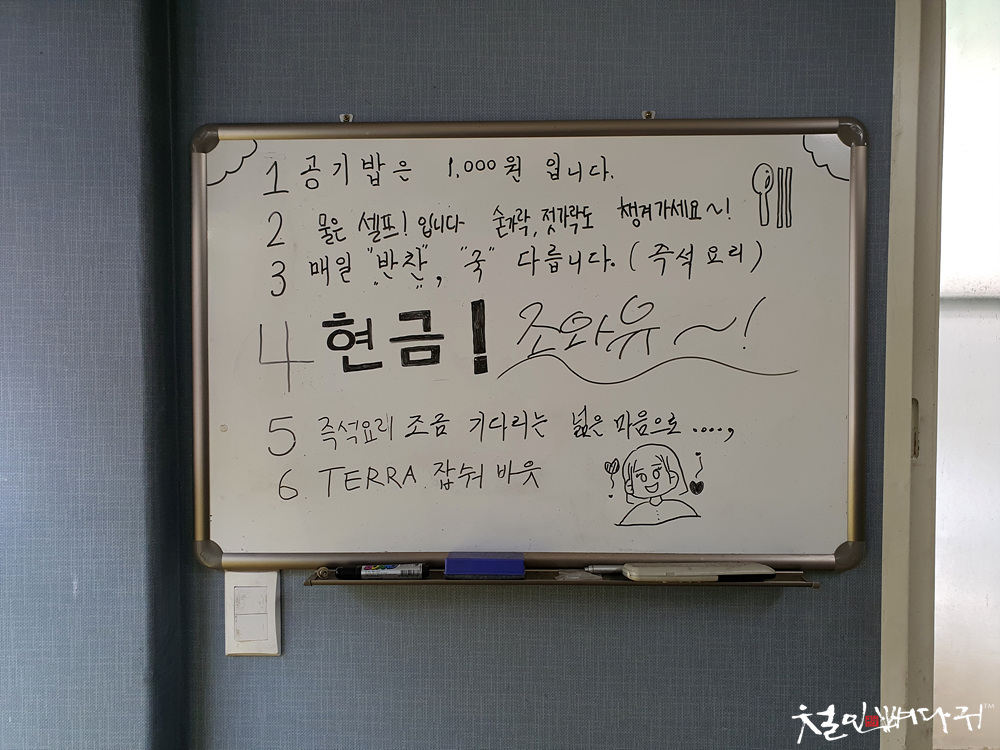 1 공기밥은 1,000원 입니다.
2 물은 셀프! 입니다 숟가락, 젓가락도 챙겨가세요~!
3 매일 "반찬", "국" 다릅니다. (즉석요리)
4 현금! 조와유~!
5 즉석요리 조금 기다리는 넓은 마음으로.....,
6. TERRA 잡숴 바웃
철민뼈다귀™